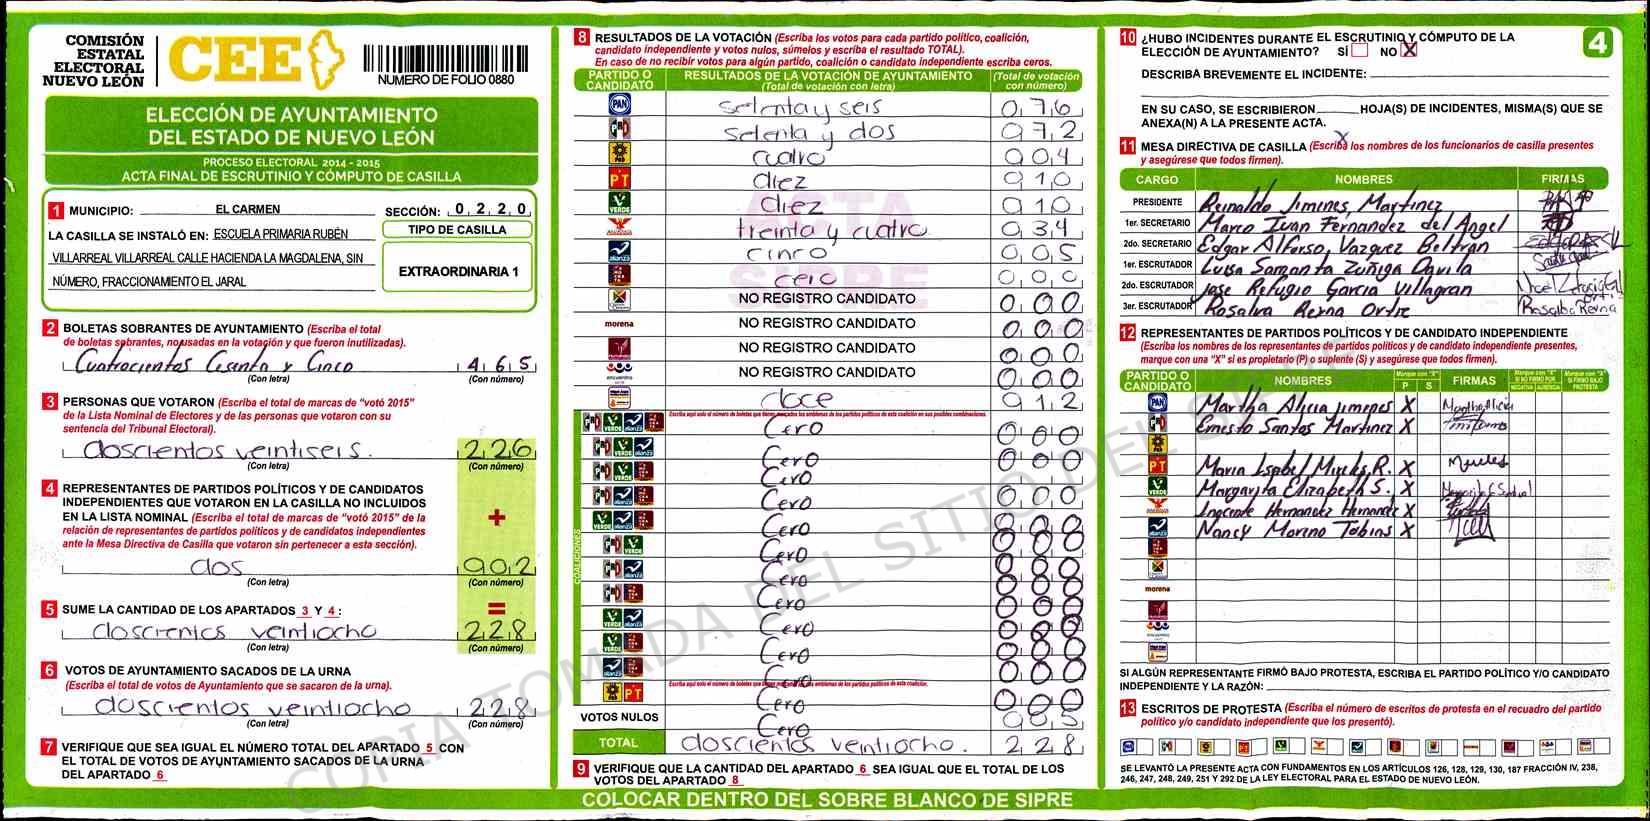 COMISIÓN
ESTATAL
ELECTORAL
NUEVO LEÓN
CEE
NUMERO DE FOLIO 0880
ELECCIÓN DE AYUNTAMIENTO
DEL ESTADO DE NUEVO LEÓN
PROCESO ELECTORAL 2014 - 2015
ACTA FINAL DE ESCRUTINIO Y CÓMPUTO DE CASILLA
1 MUNICIPIO: EL CARMEN SECCIÓN: 0 2 2 0
LA CASILLA SE INSTALÓ EN: ESCUELA PRIMARIA RUBÉN
VILLARREAL VILLARREAL CALLE HACIENDA LA MAGDALENA, SIN
NÚMERO, FRACCIONAMIENTO EL JARAL
TIPO DE CASILLA
EXTRAORDINARIA 1
2 BOLETAS SOBRANTES DE AYUNTAMIENTO (Escriba el total
de boletas sobrantes, no usadas en la votación y que fueron inutilizadas).
Cuatrocientos Cesenta y Cinco 4 6 5
(Con letra) (Con número)
3 PERSONAS QUE VOTARON (Escriba el total de marcas de "votó 2015"
de la Lista Nominal de Electores y de las personas que votaron con su
sentencia del Tribunal Electoral).
doscientos veintiseis. 2 2 6
(Con letra) (Con número)
4 REPRESENTANTES DE PARTIDOS POLÍTICOS Y DE CANDIDATOS
INDEPENDIENTES QUE VOTARON EN LA CASILLA NO INCLUIDOS
EN LA LISTA NOMINAL (Escriba el total de marcas de "votó 2015" de la
relación de representantes de partidos políticos y de candidatos independientes
ante la Mesa Directiva de Casilla que votaron sin pertenecer a esta sección).
+
dos 0 0 2
(Con letra) (Con número)
5 SUME LA CANTIDAD DE LOS APARTADOS 3 Y 4 :
=
doscientos veintiocho 2 2 8
(Con letra) (Con número)
6 VOTOS DE AYUNTAMIENTO SACADOS DE LA URNA
(Escriba el total de votos de Ayuntamiento que se sacaron de la urna).
doscientos veintiocho 2 2 8
(Con letra) (Con número)
7 VERIFIQUE QUE SEA IGUAL EL NÚMERO TOTAL DEL APARTADO 5 CON
EL TOTAL DE VOTOS DE AYUNTAMIENTO SACADOS DE LA URNA
DEL APARTADO 6
8 RESULTADOS DE LA VOTACIÓN (Escriba los votos para cada partido político, coalición,
candidato independiente y votos nulos, súmelos y escriba el resultado TOTAL).
En caso de no recibir votos para algún partido, coalición o candidato independiente escriba ceros.
PARTIDO O CANDIDATO
RESULTADOS DE LA VOTACIÓN DE AYUNTAMIENTO
(Total de votación con letra)
(Total de votación con número)
PAN setenta y seis 0 7 6
PRD setenta y dos 0 7 2
PRD cuatro 0 0 4
PT diez 0 1 0
VERDE diez 0 1 0
treinta y cuatro 0 3 4
alianza cinco 0 0 5
cero 0 0 0
NO REGISTRO CANDIDATO 0 0 0
morena NO REGISTRO CANDIDATO 0 0 0
NO REGISTRO CANDIDATO 0 0 0
NO REGISTRO CANDIDATO 0 0 0
doce 0 1 2
COALICIONES
Cero 0 0 0
Cero 0 0 0
Cero
Cero 0 0 0
Cero 0 0 0
Cero 0 0 0
Cero 0 0 0
Cero 0 0 0
Cero 0 0 0
Cero 0 0 0
Cero 0 0 0
Cero 0 0 0
VOTOS NULOS Cero 0 0 5
TOTAL doscientos veintiocho. 2 2 8
9 VERIFIQUE QUE LA CANTIDAD DEL APARTADO 6 SEA IGUAL QUE EL TOTAL DE LOS
VOTOS DEL APARTADO 8
COLOCAR DENTRO DEL SOBRE BLANCO DE SIPRE
ACTA
SIPRE
COPIA TOMADA DEL SITIO DEL SIPRE
10 ¿HUBO INCIDENTES DURANTE EL ESCRUTINIO Y CÓMPUTO DE LA
ELECCIÓN DE AYUNTAMIENTO? SÍ NO X
4
DESCRIBA BREVEMENTE EL INCIDENTE:
EN SU CASO, SE ESCRIBIERON HOJA(S) DE INCIDENTES, MISMA(S) QUE SE
ANEXA(N) A LA PRESENTE ACTA.
11 MESA DIRECTIVA DE CASILLA (Escriba los nombres de los funcionarios de casilla presentes
y asegúrese que todos firmen).
CARGO NOMBRES FIRMAS
PRESIDENTE Reinaldo Jimenes Martinez
1er. SECRETARIO Marco Ivan Fernandez del Angel
2do. SECRETARIO Edgar Alfonso Vazquez Beltran
1er. ESCRUTADOR Luisa Samanta Zuñiga Davila
2do. ESCRUTADOR Jose Refugio Garcia Villagran
3er. ESCRUTADOR Rosalva Reyna Ortiz Rosalba Reina
12 REPRESENTANTES DE PARTIDOS POLÍTICOS Y DE CANDIDATO INDEPENDIENTE
(Escriba los nombres de los representantes de partidos políticos y de candidato independiente presentes,
marque con una "X" si es propietario (P) o suplente (S) y asegúrese que todos firmen).
PARTIDO O CANDIDATO NOMBRES Marque con "X" P S FIRMAS
Marque con "X" SI NO FIRMÓ POR NEGATIVA AUSENCIA
Marque con "X" SI FIRMÓ BAJO PROTESTA
PAN Martha Alicia Jimenes X Martha Alicia
Ernesto Santos Martinez X
PRD
PT Maria Isabel Mireles R. X Mireles
VERDE Margarita Elizabeth S. X
Inocente Hernandez Hernandez X
alianza Nancy Moreno Tobias X
morena
SI ALGÚN REPRESENTANTE FIRMÓ BAJO PROTESTA, ESCRIBA EL PARTIDO POLÍTICO Y/O CANDIDATO
INDEPENDIENTE Y LA RAZÓN:
13 ESCRITOS DE PROTESTA (Escriba el número de escritos de protesta en el recuadro del partido
político y/o candidato independiente que los presentó).
SE LEVANTÓ LA PRESENTE ACTA CON FUNDAMENTOS EN LOS ARTÍCULOS 126, 128, 129, 130, 187 FRACCIÓN IV, 238,
246, 247, 248, 249, 251 Y 292 DE LA LEY ELECTORAL PARA EL ESTADO DE NUEVO LEÓN.